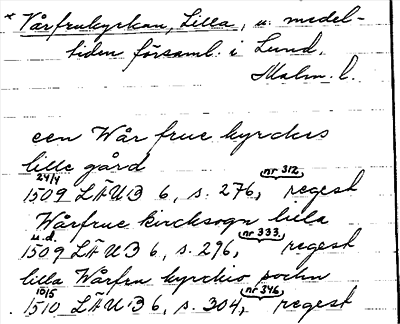 * Vårfrukyrkan, Lilla, u. medel-
tiden församl. i Lund.
Malm. l.
een Wår frue kyrckis
lille gård
24/4 nr 312,
1509 LÄUB 6, s. 276, regest
Wårfrue kircksogn lila
u.d. nr 333,
1509 LÄUB 6, s. 296, regest
lilla Wårfru kyrckio sochn
10/5 nr 346,
1510 LÄUB 6, s. 304, regest